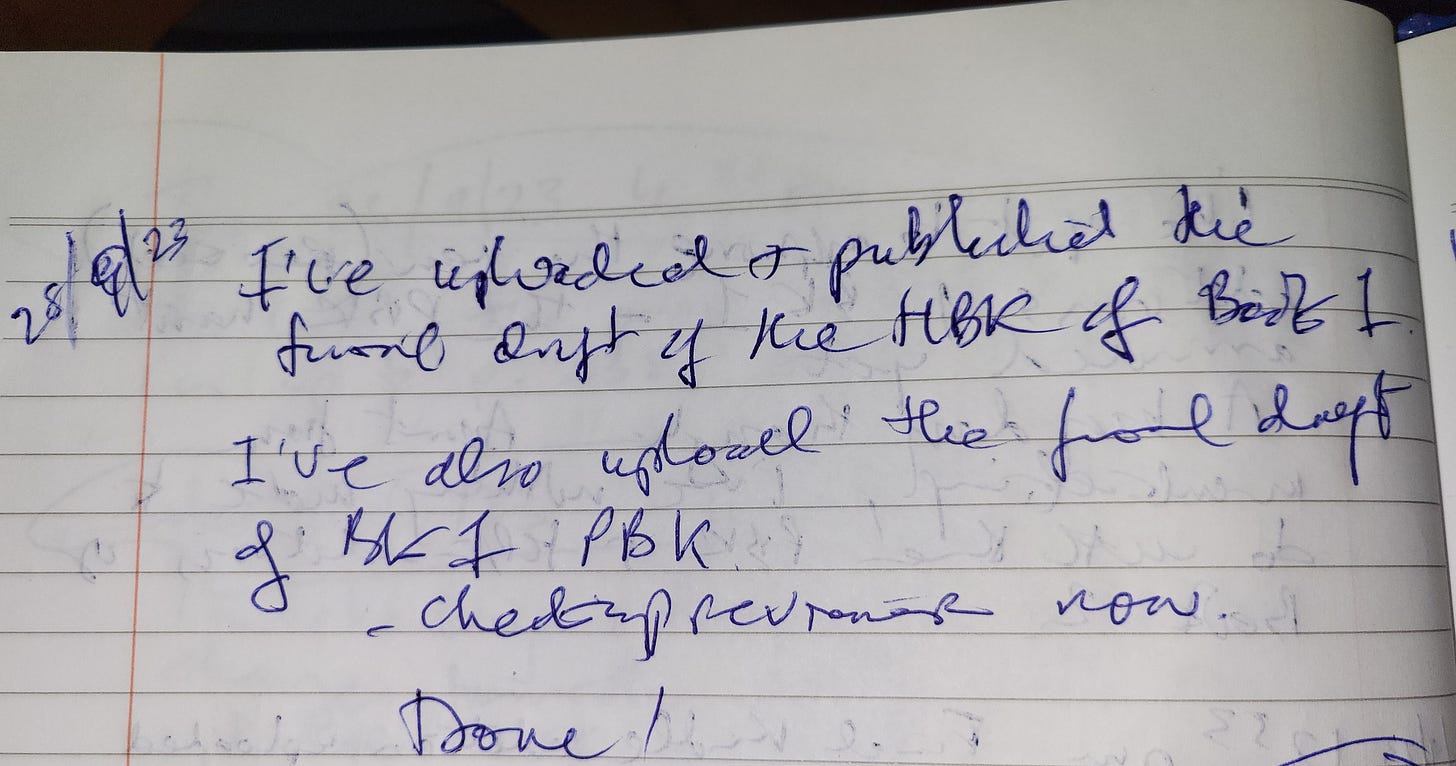 28/9/23 I've uploaded & published the
final draft of the HBK of Book I.
I've also upload the final draft
of BK I PBK
- checking previewer now.
Done!